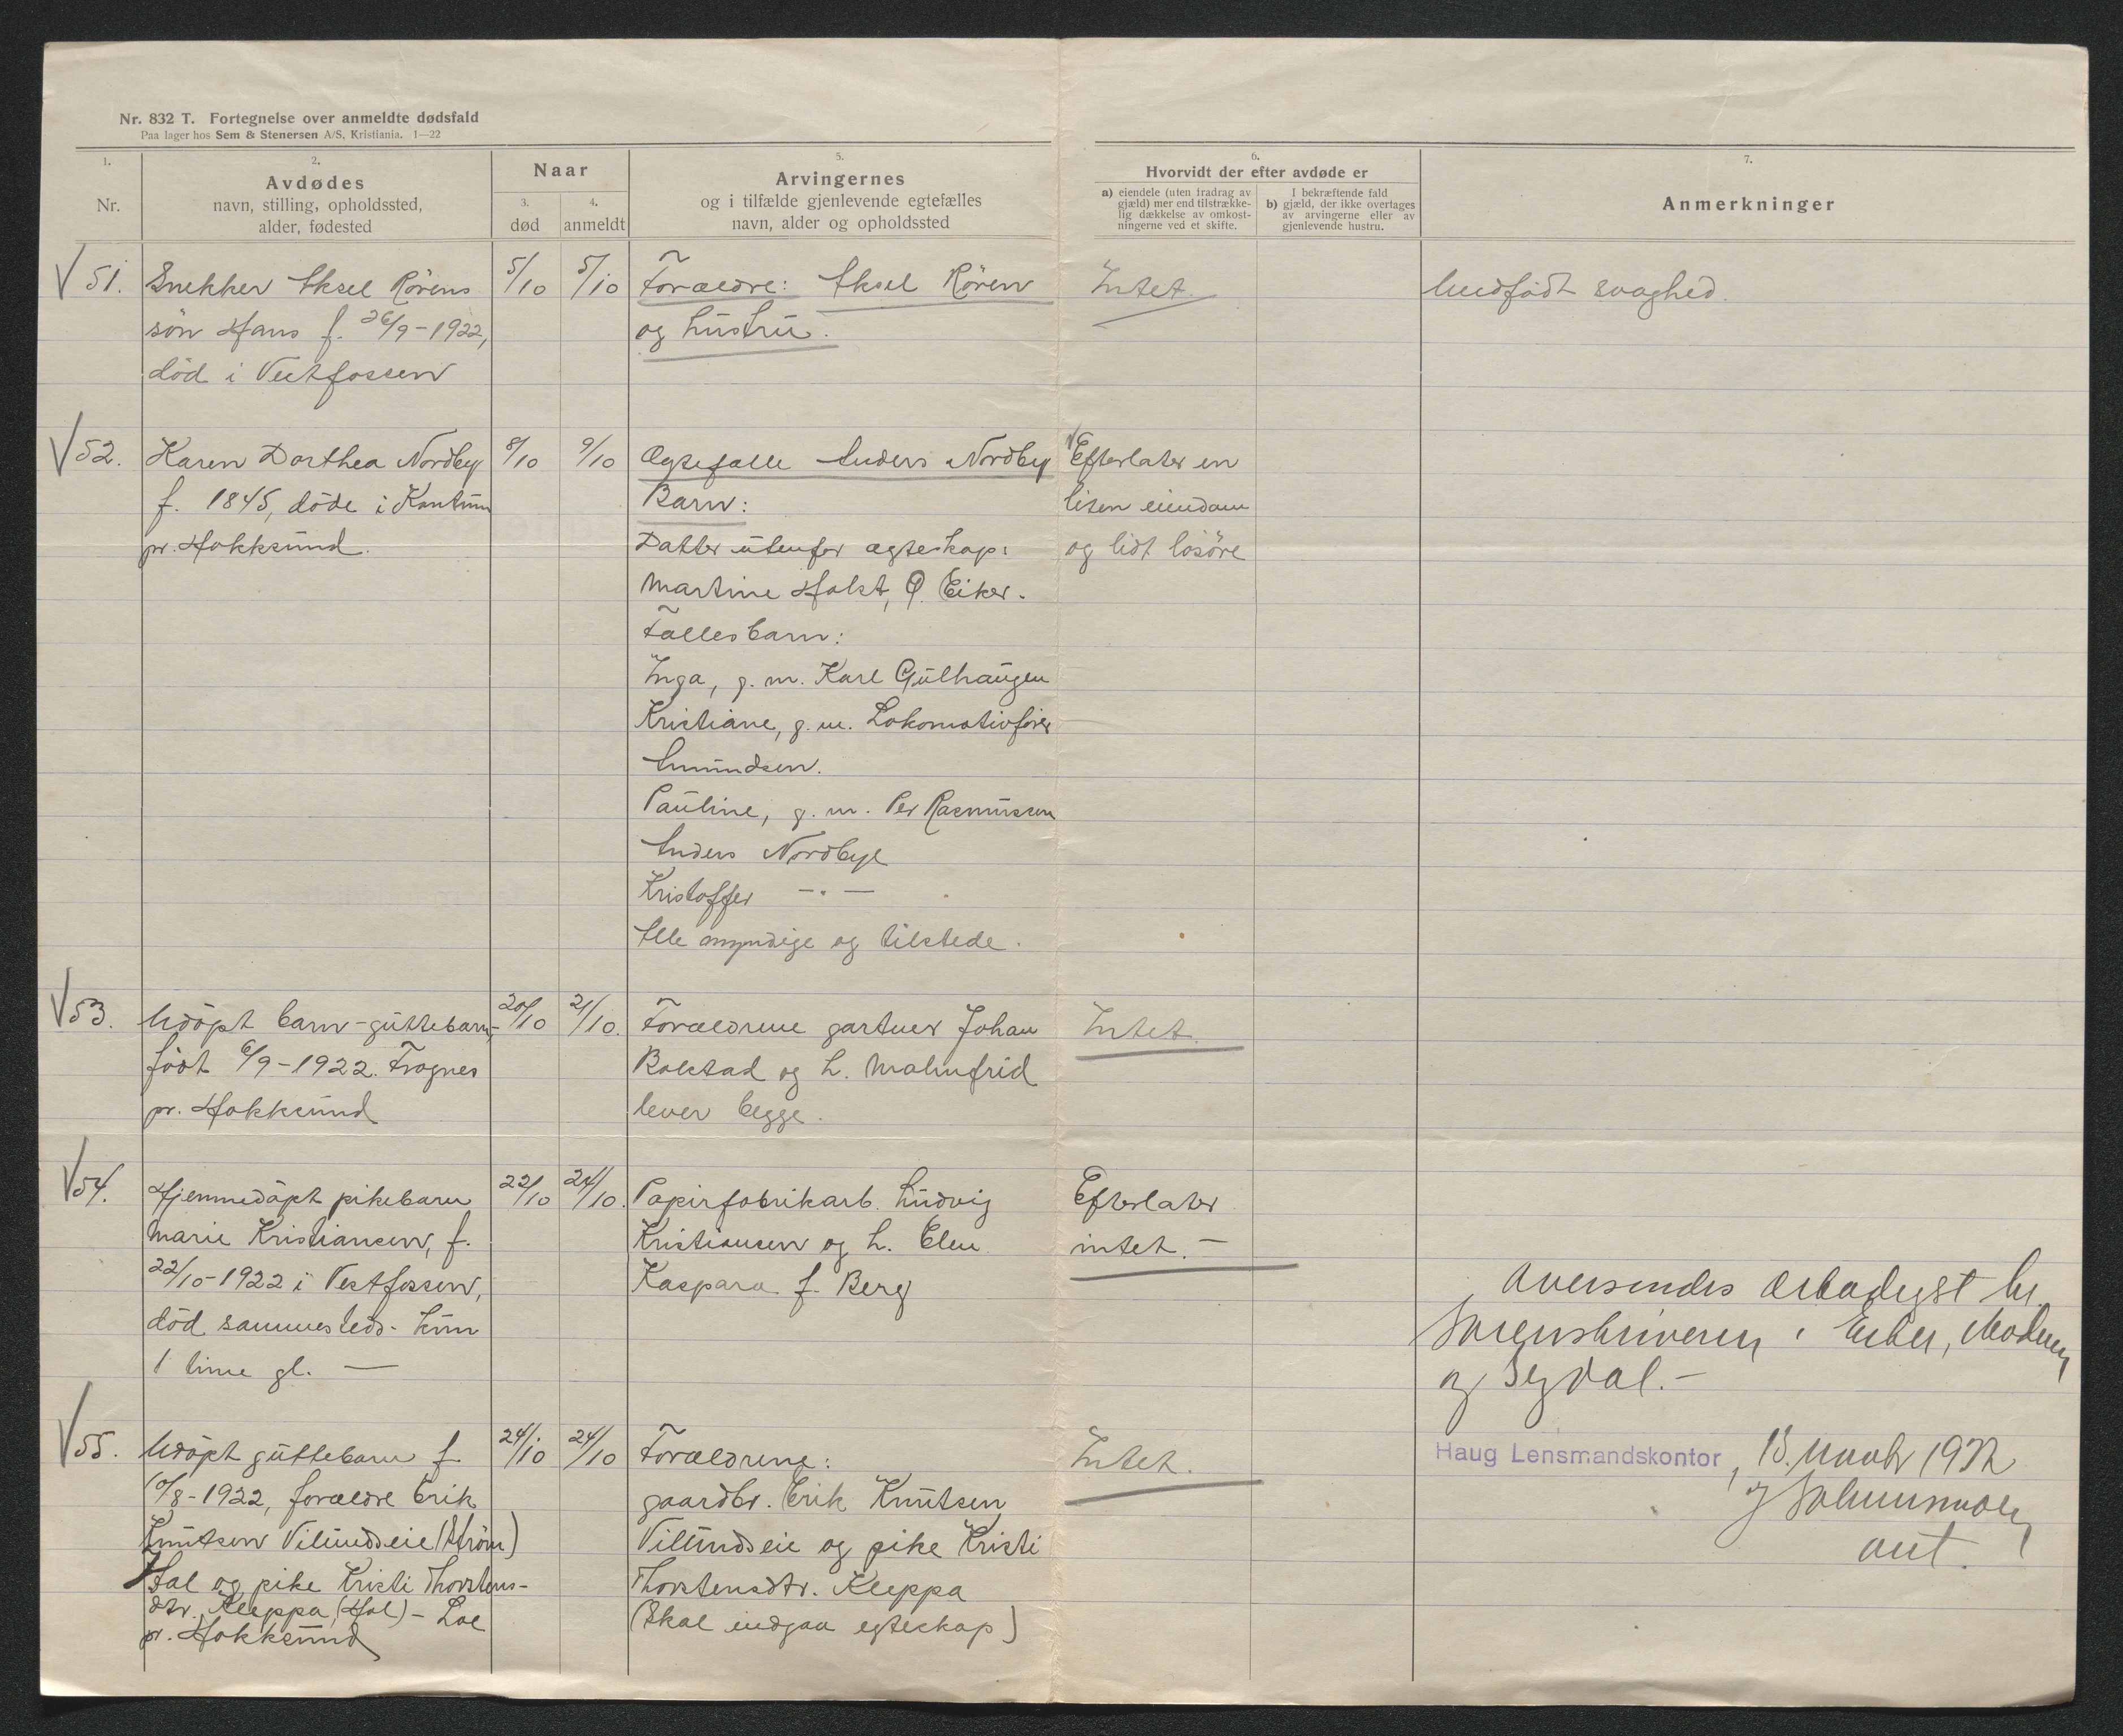 Nr. 832 T. Fortegnelse over anmeldte dødsfald
Paa lager hos Sem & Stenersen A/S, Kristiania. 1—22
1.
Nr.
2.
Avdødes
navn, stilling, opholdssted,
alder, fødested
Naar
3.
død
4.
anmeldt
5.
Arvingernes
og i tilfælde gjenlevende egtefælles
navn, alder og opholdssted
6.
Hvorvidt der efter avdøde er
a) eiendele (uten fradrag av
gjæld) mer end tilstrække-
lig dækkelse av omkost-
ningerne ved et skifte.
I bekræftende fald
b) gjæld, der ikke overtages
av arvingerne eller av
gjenlevende hustru.
7.
Anmerkninger
51.
Snekker Aksel Rörens
sön Hans f. 26/9-1922,
död i Vestfossen
5/10
5/10
Forældre: Aksel Rören
og hustru.
Intet.
Medfödt svaghed.
52.
Karen Dorthea Nordby
f. 1845, döde i Kontum
pr. Hokksund.
8/10
9/10
Ægtefælle Anders Nordby
Barn:
Datter utenfor ægteskap:
Martine Holst, Ø. Eiker.
Fællesbarn:
Inga, g. m. Karl Gulhaugen
Kristiane, g. m. Lokomotivförer
Amundsen.
Pauline, g. m. Per Rasmussen
Anders Nordbye
Kristoffer —"—
Alle myndige og tilstede.
Efterlater en
liten eiendom
og lidt lösöre
53.
Udöpt barn-guttebarn-
födt 6/9-1922. Frognes
pr. Hokksund
20/10
21/10.
Forældrene gartner Johan
Bolstad og h. Malmfrid
lever begge.
Intet.
54.
Hjemmedöpt pikebarn
Marie Kristiansen, f.
22/10-1922 i Vestfossen,
död sammesteds. Kun
1 time gl. —
22/10
24/10.
Papirfabrikarb. Ludvig
Kristiansen og h. Elen
Kaspara f. Berg
Efterlater
intet. —
55.
Udöpt guttebarn f.
10/8-1922, forældre Erik
Knutsen Vilundseie (Ström)
Hal og pike Kristi Thorstens-
dtr. Kleppa, (Hol) - Loe
pr. Hokksund
24/10
24/10
Forældrene:
gaardbr. Erik Knutsen
Vilundseie og pike Kristi
Thorstensdtr. Kleppa
(Skal indgaa egteskap)
Intet.
Oversendes ærbødigst hr.
Sorenskriveren i Eiker, Modum
og Sigdal.—
Haug Lensmandskontor, 13. novbr 1922
ant.